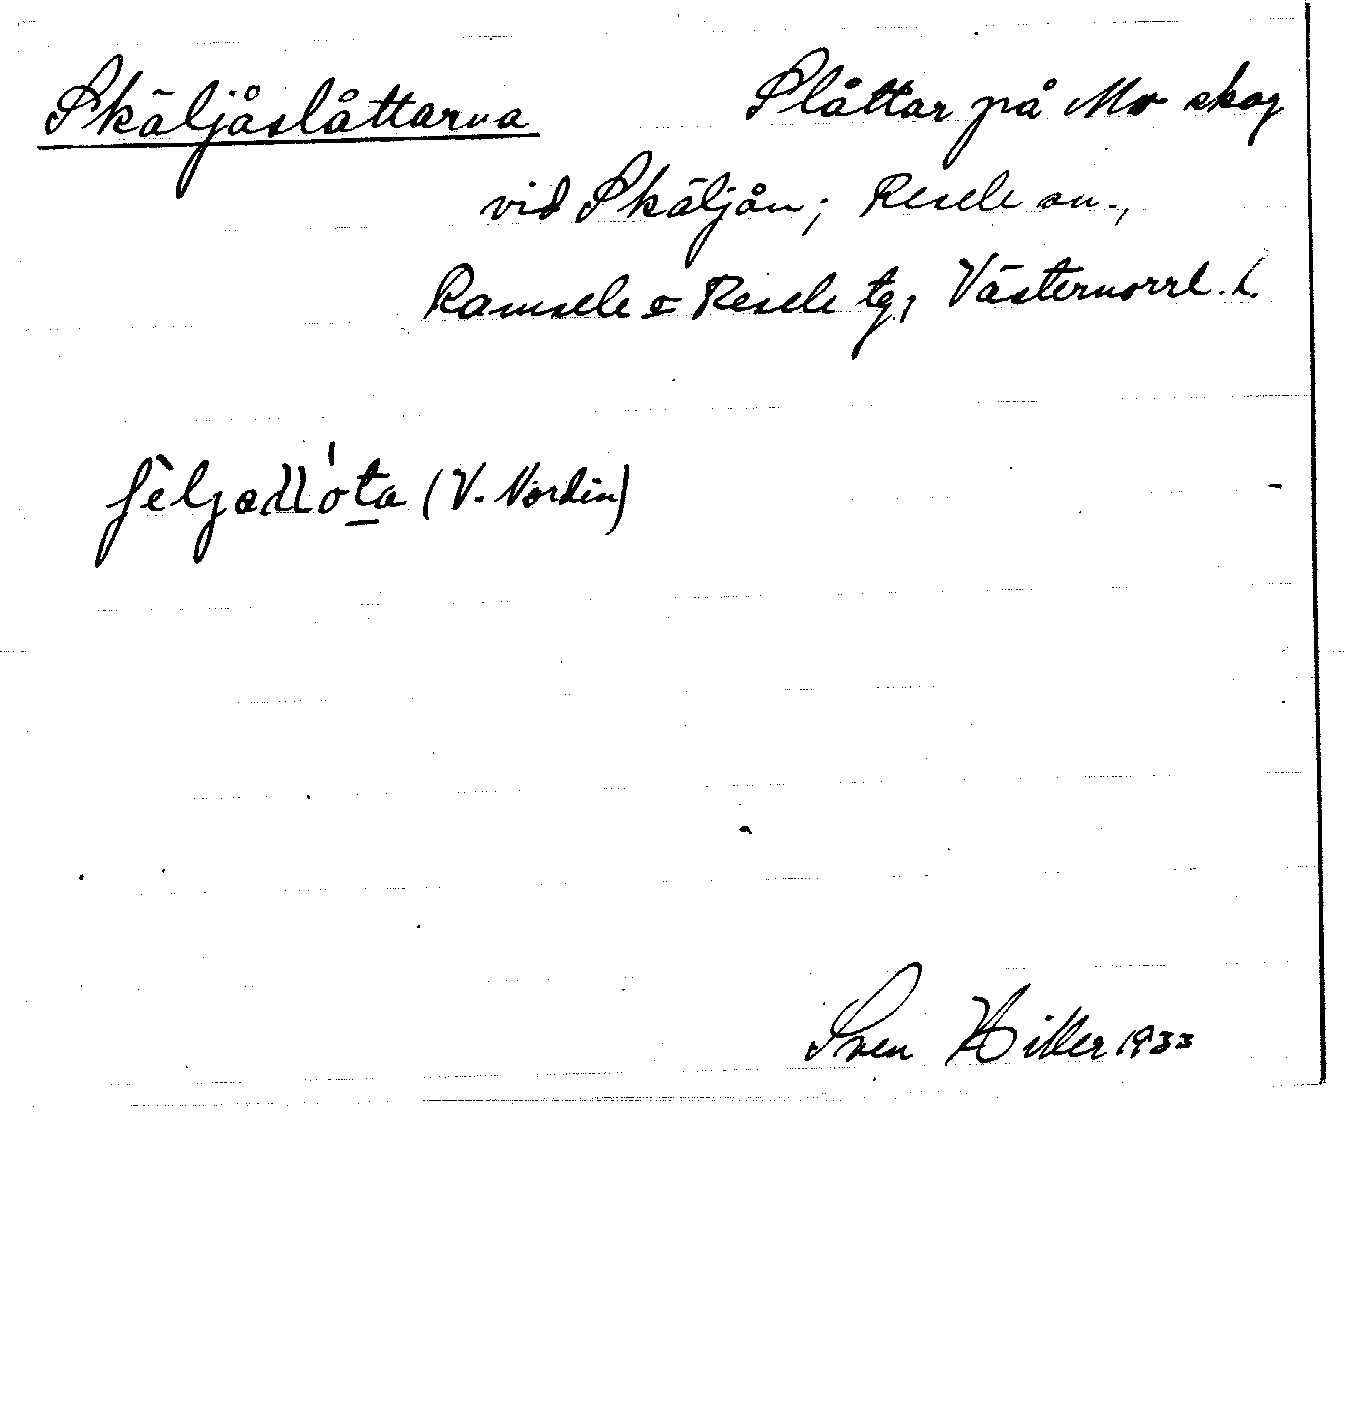 Skäljåslåttarna
Slåttar på Mo skog
vid Skäljån; Resele sn.,
Ramsele o Resele tg, Västernorrl. l.
(V. Nordin)
Sven Hiller 1933